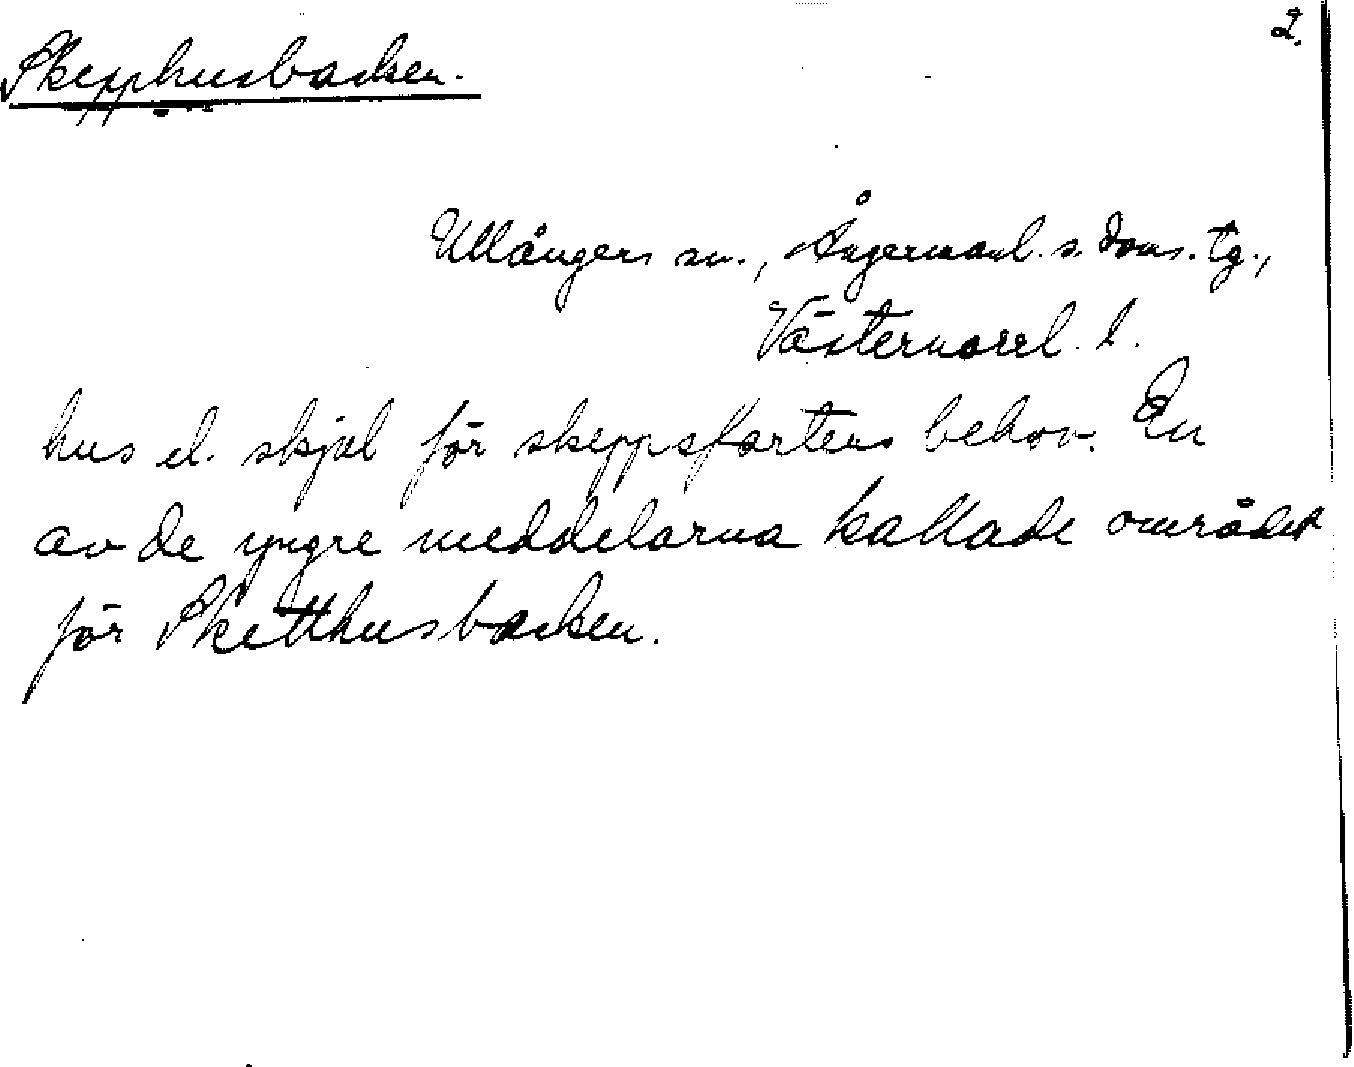 2.
Skepphusbacken.
Ullångers sn., Ångermanl. s. doms. tg.,
Västernorrl. l.
hus el. skjul för skeppsfartens behov. En
av de yngre meddelarna kallade området
för Sketthusbacken.